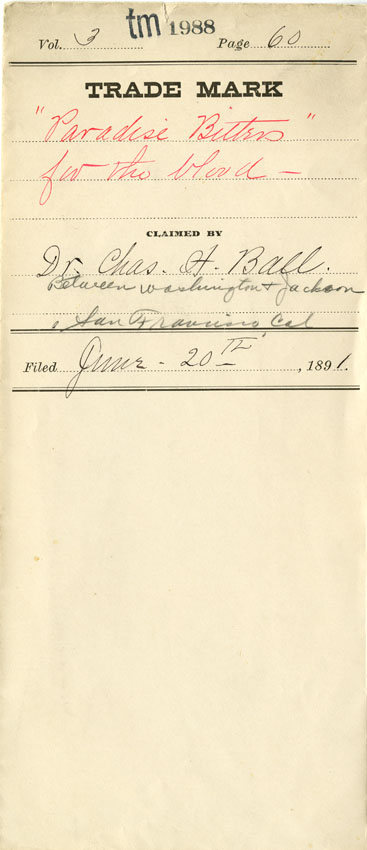 tm 1988
Vol. 3 Page 60
TRADE MARK
"Paradise Bitters"
for the blood –
CLAIMED BY
Dr. Chas. H. Ball.
Between Washington & Jackson
San Francisco Cal
Filed June - 20TH, 1891.